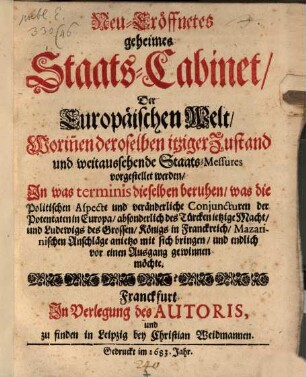 Neu-Eröffnetes
geheimes
Staats-Cabinet/
Der
Europäischen Welt/
Worinen deroselben itziger Zustand
und weitaussehende Staats-Messures
vorgestellet werden/
In was terminis dieselben beruhen/ was die
Politischen Aspecte und veränderliche Conjuncturen der
Potentaten in Europa/ absonderlich des Türcken ietzige Macht/
und Ludewigs des Grossen/ Königs in Franckreich/ Mazari-
nischen Anschläge anietzo mit sich bringen/ und endlich
vor einen Ausgang gewinnen
möchte.
Franckfurt
In Verlegung des AUTORIS,
und
zu finden in Leipzig bey Christian Weidmannen.
Gedruckt im 1683. Jahr.